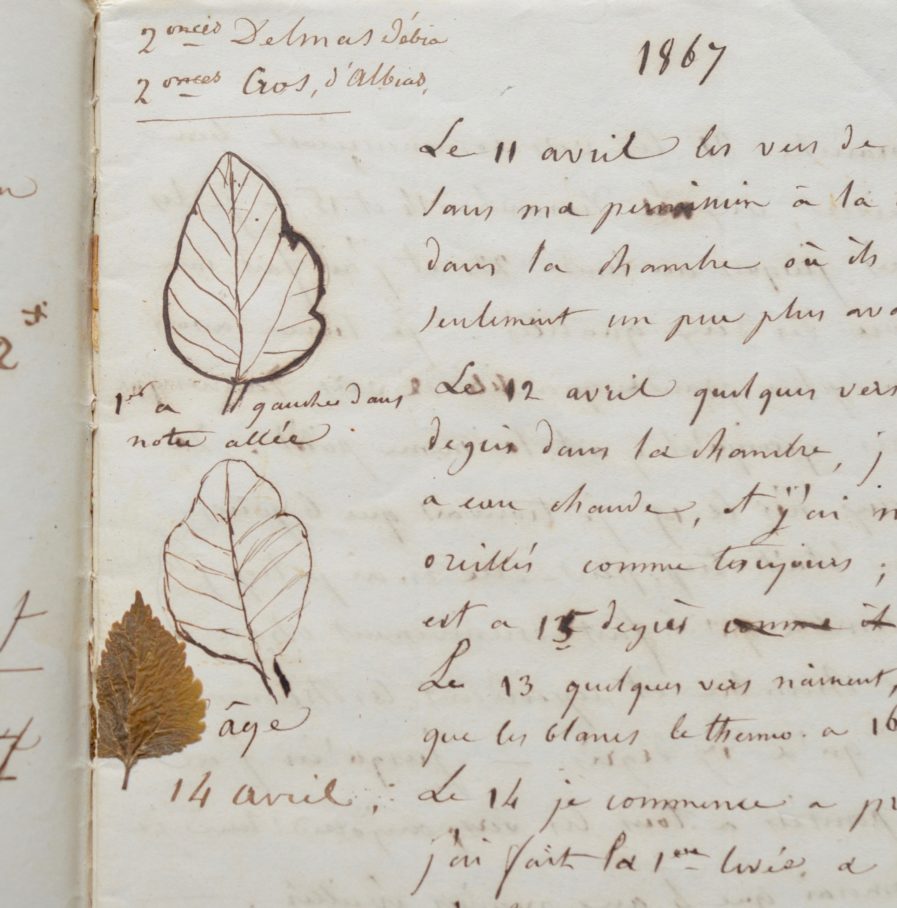 2 onces Delmas d'ébia
2 onces Cros, d'Albias,
1867
Le 11 avril les vers de
sans ma permission à la
dans la chambre où ils
seulement un peu plus
1er a gauche dans
notre allée
Le 12 avril quelques vers
degrés dans la chambre, j
a eau chaude, et j'ai
oreillés comme toujours ;
est a 15 degrés comme il
Le 13 quelques vers naissent,
que les blancs le thermo. a 16
âge
14 avril ;
Le 14 je commence a
j'ai fait la 1ere levée, a
2